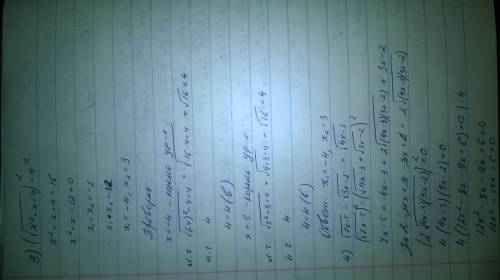 3) (√(x²+x+4))² = 4²
x²+x+4=16
x²+x-12=0
x₁+x₂=-1
x₁·x₂=-12
x₁=-4, x₂=3
Проверка
x=-4 - корень ур-я
л.ч. √((-4)²-4+4) = √(16-4+4) = √16=4
п.ч. 4
4=4 (в)
x=3 - корень ур-я
л.ч. √(3²+3+4) =
п.ч. 4
4=4 (в)
Ответ: x₁=-4, x₂=3
4) √(7x-5) - √(3x-2) = √(4x-3)
(√(7x-5))² = (√(4x-3) + √(3x-2))²
7x-5 = 4x-3 + 2√((4x-3)(3x-2)) + 3x-2
4(4x-3)(3x-2)=0
4(12x²-8x-9x+6)=0 | 4